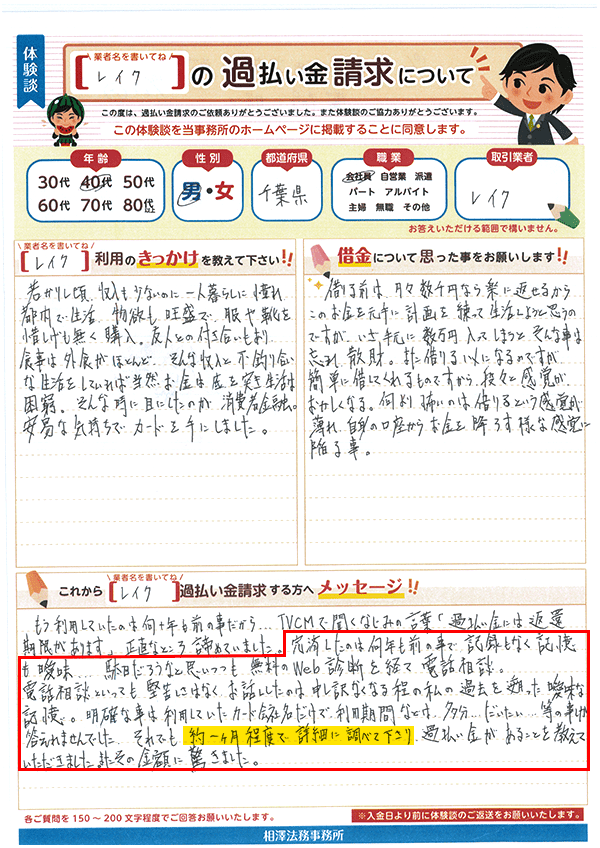 体験談
業者名を書いてね
[レイク]の過払い金請求について
この度は、過払い金請求のご依頼ありがとうございました。また体験談のご協力ありがとうございます。
この体験談を当事務所のホームページに掲載することに同意します。
年齢
30代 40代 50代
60代 70代 80代以上
性別
男・女
都道府県
千葉県
職業
会社員 自営業 派遣
パート アルバイト
主婦 無職 その他
取引業者
レイク
お答えいただける範囲で構いません。
業者名を書いてね
[レイク]利用のきっかけを教えて下さい!!
若かりし頃、収入も少ないのに一人暮らしに憧れ
都内で生活。物欲も旺盛で、服や靴を
惜しげも無く購入。友人との付き合いもあり
食事は外食がほとんど… そんな収入と不釣り合い
な生活をしていれば当然お金は底を突き生活は
困窮。そんな時に目にしたのが消費者金融。
安易な気持ちでカードを手にしました。
借金について思った事をお願いします!!
借りる前は、月々数千円なら楽に返せるから
このお金を元手に計画を練って生活しようと思うの
ですが、いざ手元に数万円入ってしまうとそんな事は
忘れ、散財。また借りるハメになるのですが
簡単に借してくれるものですから、段々と感覚が
おかしくなる。何より怖いのは借りるという感覚が
薄れ、自身の口座からお金を降ろす様な感覚に
陥る事。
業者名を書いてね
これから[レイク]過払い金請求する方へメッセージ!!
もう利用していたのは何十年も前の事だから… TVCMで聞くなじみの言葉「過払い金には返還
期限があります」正直なところ諦めていました。完済したのは何年も前の事で、記録もなく記憶
も曖昧… 駄目だろうなと思いつつも無料のWeb診断を経て電話相談。
電話相談といっても堅苦しくはなく、お話ししたのは申し訳なくなる程の私の過去を遡った曖昧な
記憶。明確な事は利用していたカード会社名だけで、利用期間などは、多分… だいたい… 等の事しか
答えれませんでした。それでも約一ヶ月程度で詳細に調べて下さり、過払い金があることを教えて
いただきました。またその金額に驚きました。
各ご質問を150～200文字程度でご回答お願いいたします。
※入金日より前に体験談のご返送をお願いします。
相澤法務事務所